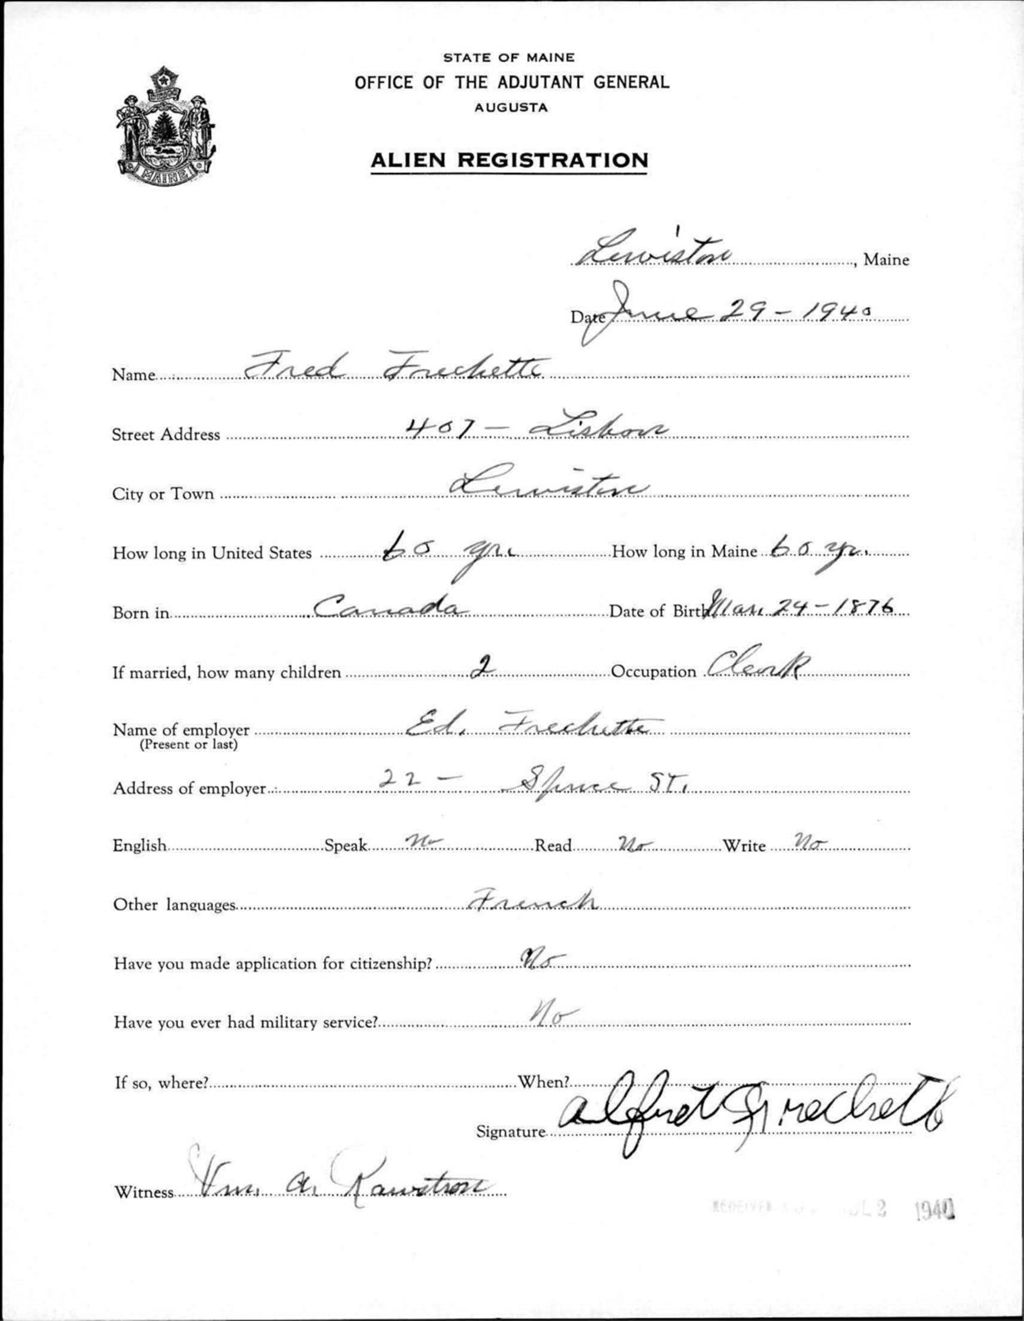 STATE OF MAINE
OFFICE OF THE ADJUTANT GENERAL
AUGUSTA
ALIEN REGISTRATION
MAINE
Lewiston, Maine
Date June 29 - 1940
Name Fred Frechette
Street Address 407 - Lisbon
City or Town Lewiston
How long in United States 60 yrs How long in Maine 60 yr.
Born in Canada Date of Birth Mar. 24 - 1876
If married, how many children 2 Occupation Clerk
Name of employer Ed. Frechette
(Present or last)
Address of employer 22 - Spruce St.
English Speak No Read No Write No
Other languages French
Have you made application for citizenship? No
Have you ever had military service? No
If so, where? When?
Signature Alfred Frechette
Witness Wm. A. Rawstron
RECEIVED JUL 2 1940